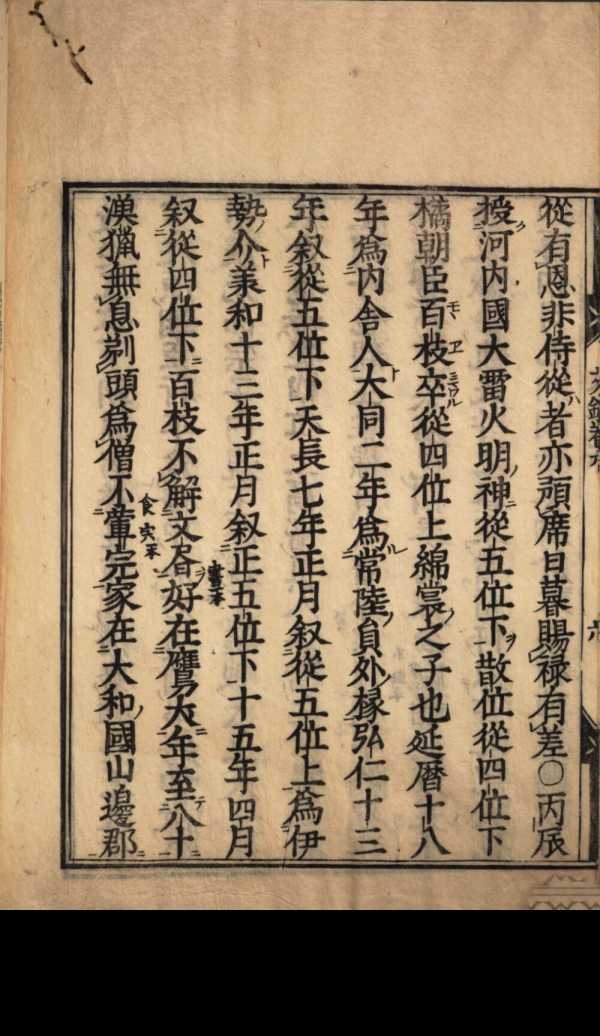 從有恩非侍從者亦預席日暮賜祿有差○丙辰
授河内國大雷火明神從五位下散位從四位下
橘朝臣百枝卒從四位上綿裳之子也延曆十八
年爲内舎人大同二年爲常陸員外掾弘仁十三
年叙從五位下天長七年正月叙從五位上爲伊
勢介羕和十三年正月叙正五位下十五年四月
叙從四位下百枝不解文𠯑好在鷹犬年至八十
漁獵無息剃頭爲僧不葷完家在大和國山邊郡